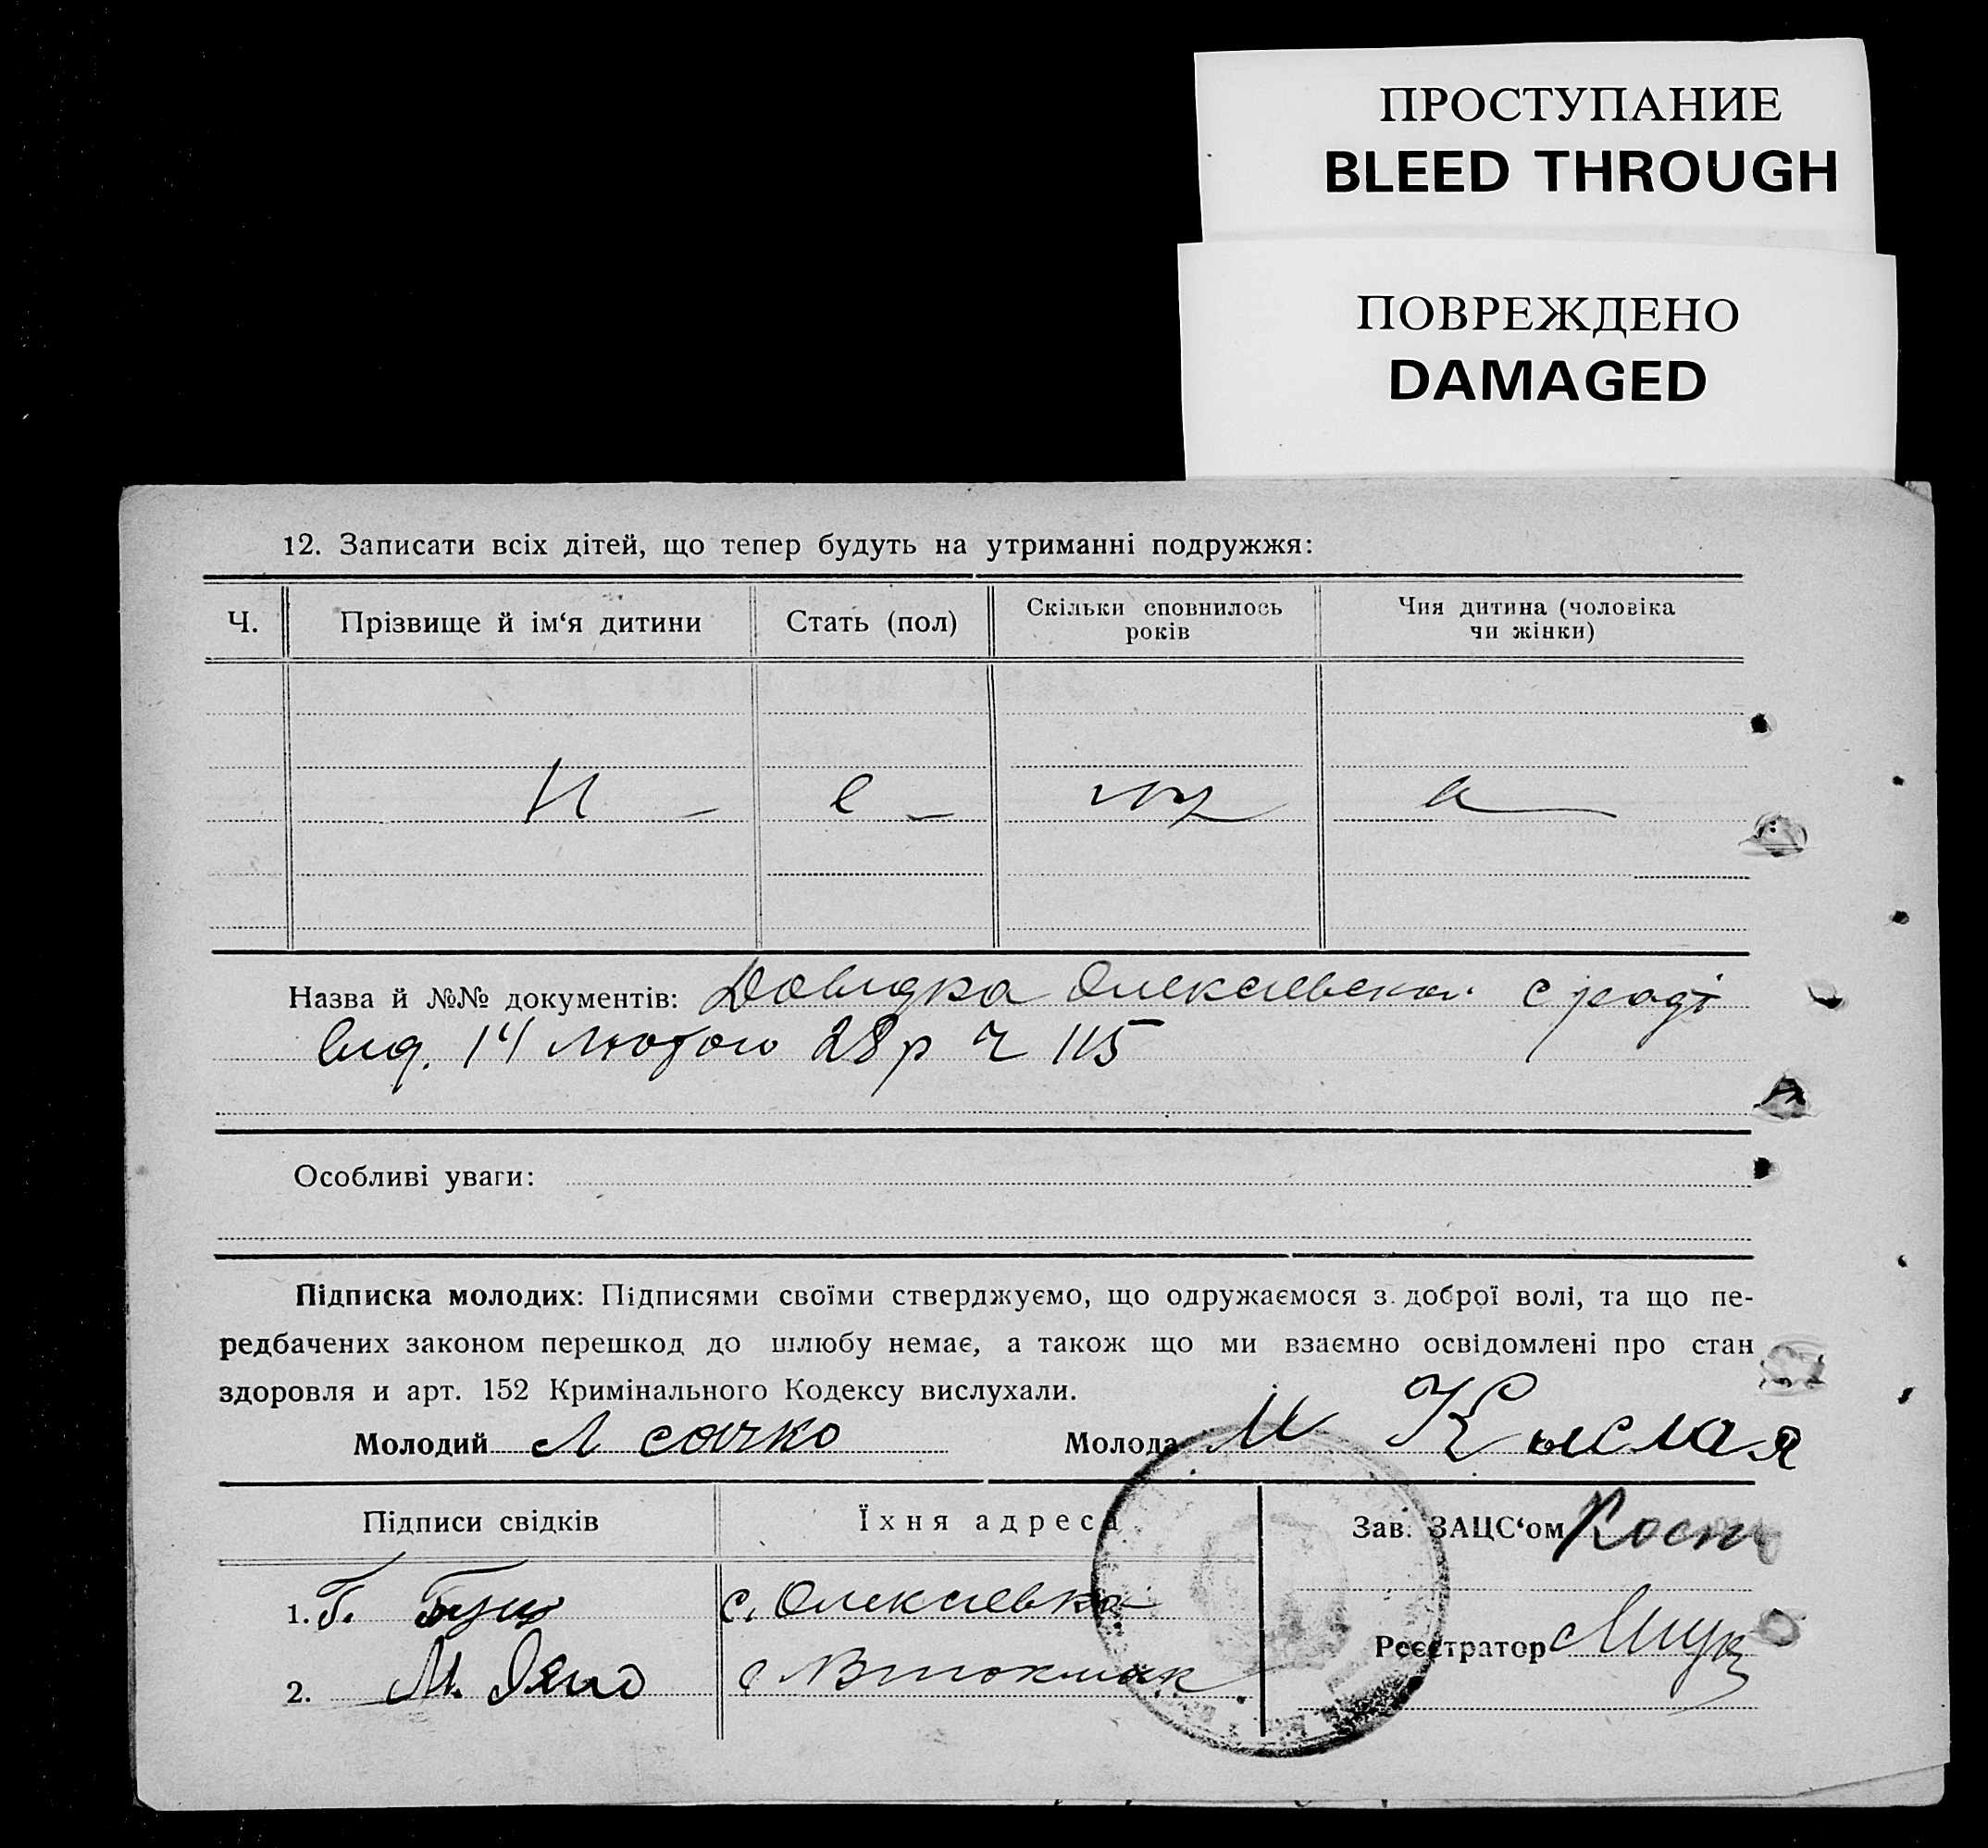 ПРОСТУПАНИЕ
BLEED THROUGH
ПОВРЕЖДЕНО
DAMAGED
12. Записати всіх дітей, що тепер будуть на утриманні подружжя:
Ч. Прізвище й ім‘я дитини Стать (пол) Скільки сповнилось років Чия дитина (чоловіка чи жінки)
Н - е - ма а
Назва й №№ документів: Довидка Олексиевской с ради
вид. 14 лютого 28 р ч 115
Особливі уваги:
Підписка молодих: Підписями своїми стверджуємо, що одружаємося з доброї волі, та що пе-
редбачених законом перешкод до шлюбу немає, а також що ми взаємно освідомлені про стан
здоровля и арт. 152 Кримінального Кодексу вислухали.
Молодий Л сачко Молода М Кыслая
Підписи свідків Їхня адреса Зав. ЗАЦС‘ом
1. Г. с. Олексиевка
Реєстратор
2. М. с Втокмак